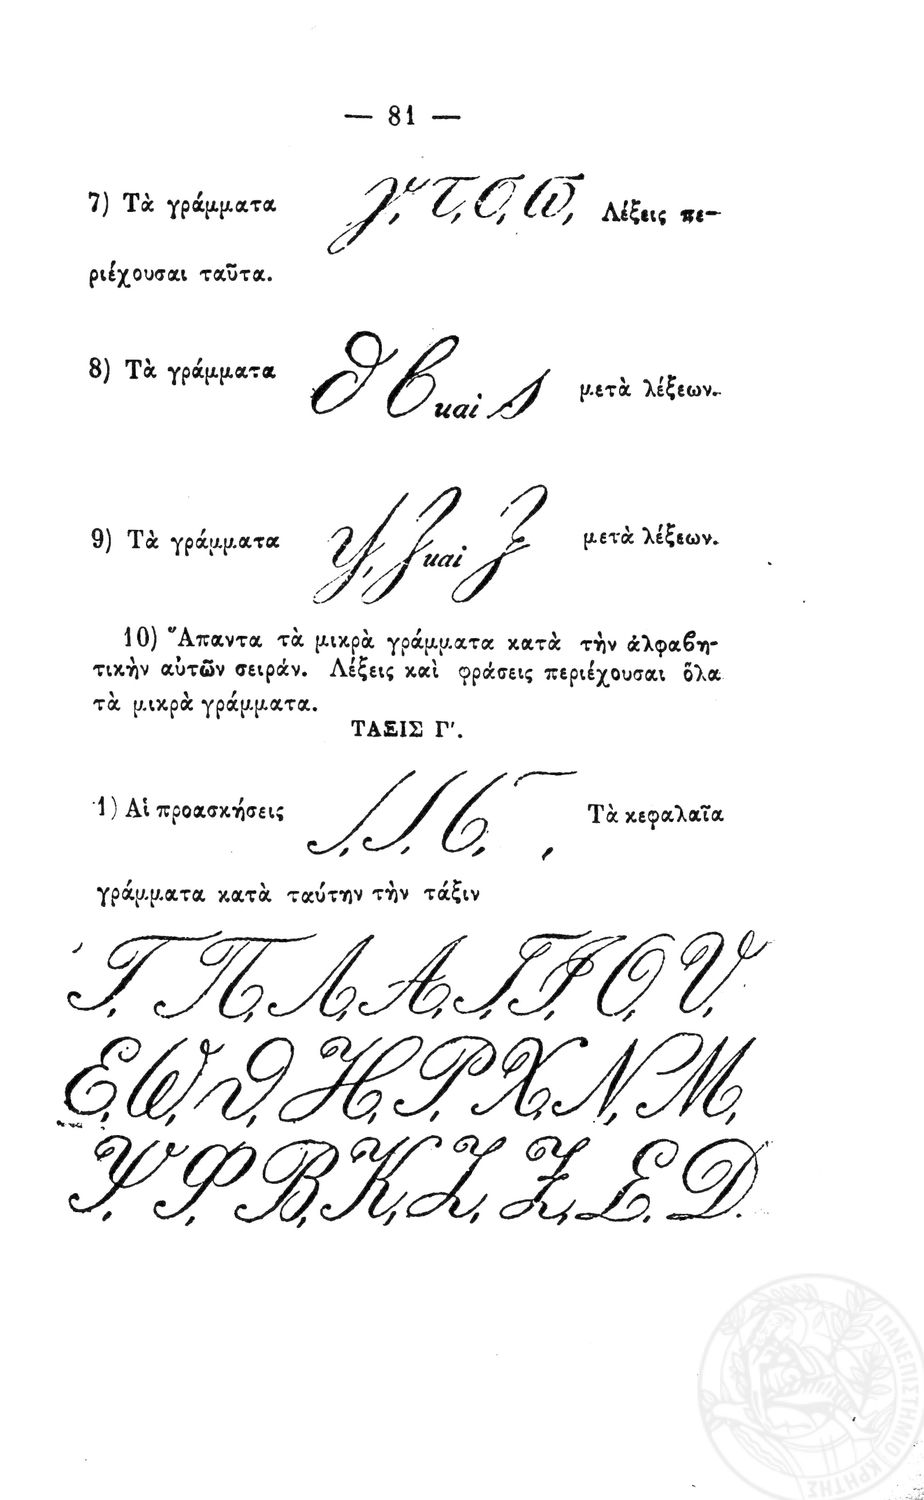 — 81 —
7) Τὰ γράμματα γ, τ, σ, ϖ, Λέξεις πε-
ριέχουσαι ταῦτα.
8) Τὰ γράμματα ϑ ϐ καὶ s μετὰ λέξεων.
9) Τὰ γράμματα ψ, ζ καὶ ξ μετὰ λέξεων.
10) Ἅπαντα τὰ μικρὰ γράμματα κατὰ τὴν ἀλφαϐη-
τικὴν αὐτῶν σειράν. Λέξεις καὶ φράσεις περιέχουσαι ὅλα
τὰ μικρὰ γράμματα.
ΤΑΞΙΣ Γʹ.
1) Αἱ προασκήσεις Τὰ κεφαλαῖα
γράμματα κατὰ ταύτην τὴν τάξιν
Γ, Π, Λ, Α, Ι, Τ, Ο, Υ,
Ε, Ω, ϑ, Η, Ρ, Χ, Ν, Μ,
Ψ, Φ, Β, Κ, Ζ, Ξ, Σ, D.
ΠΑΝΕΠΙΣΤΗΜΙΟ ΚΡΗΤΗΣ